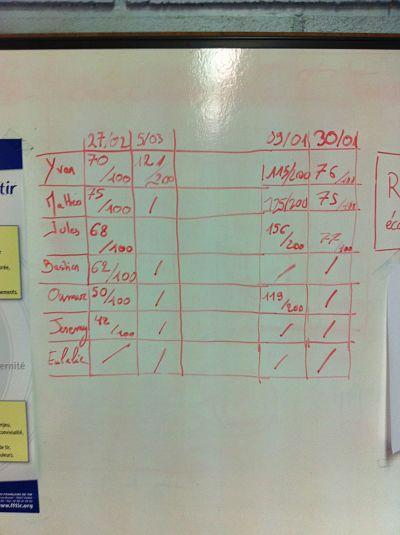 27/02 5/03 09/01 30/01
Yvan 70/100 121/200 115/200 76/100
Mathéo 75/100 / 175/200 75/100
Jules 68/100 156/200 77/100
Bastien 62/100 / / /
Oumar 50/100 / 119/200 /
Jeremy 42/100 / / /
Eulalie / / / /
R
éco
tir
ernité
convivialité.
de tir.
www.fftir.org